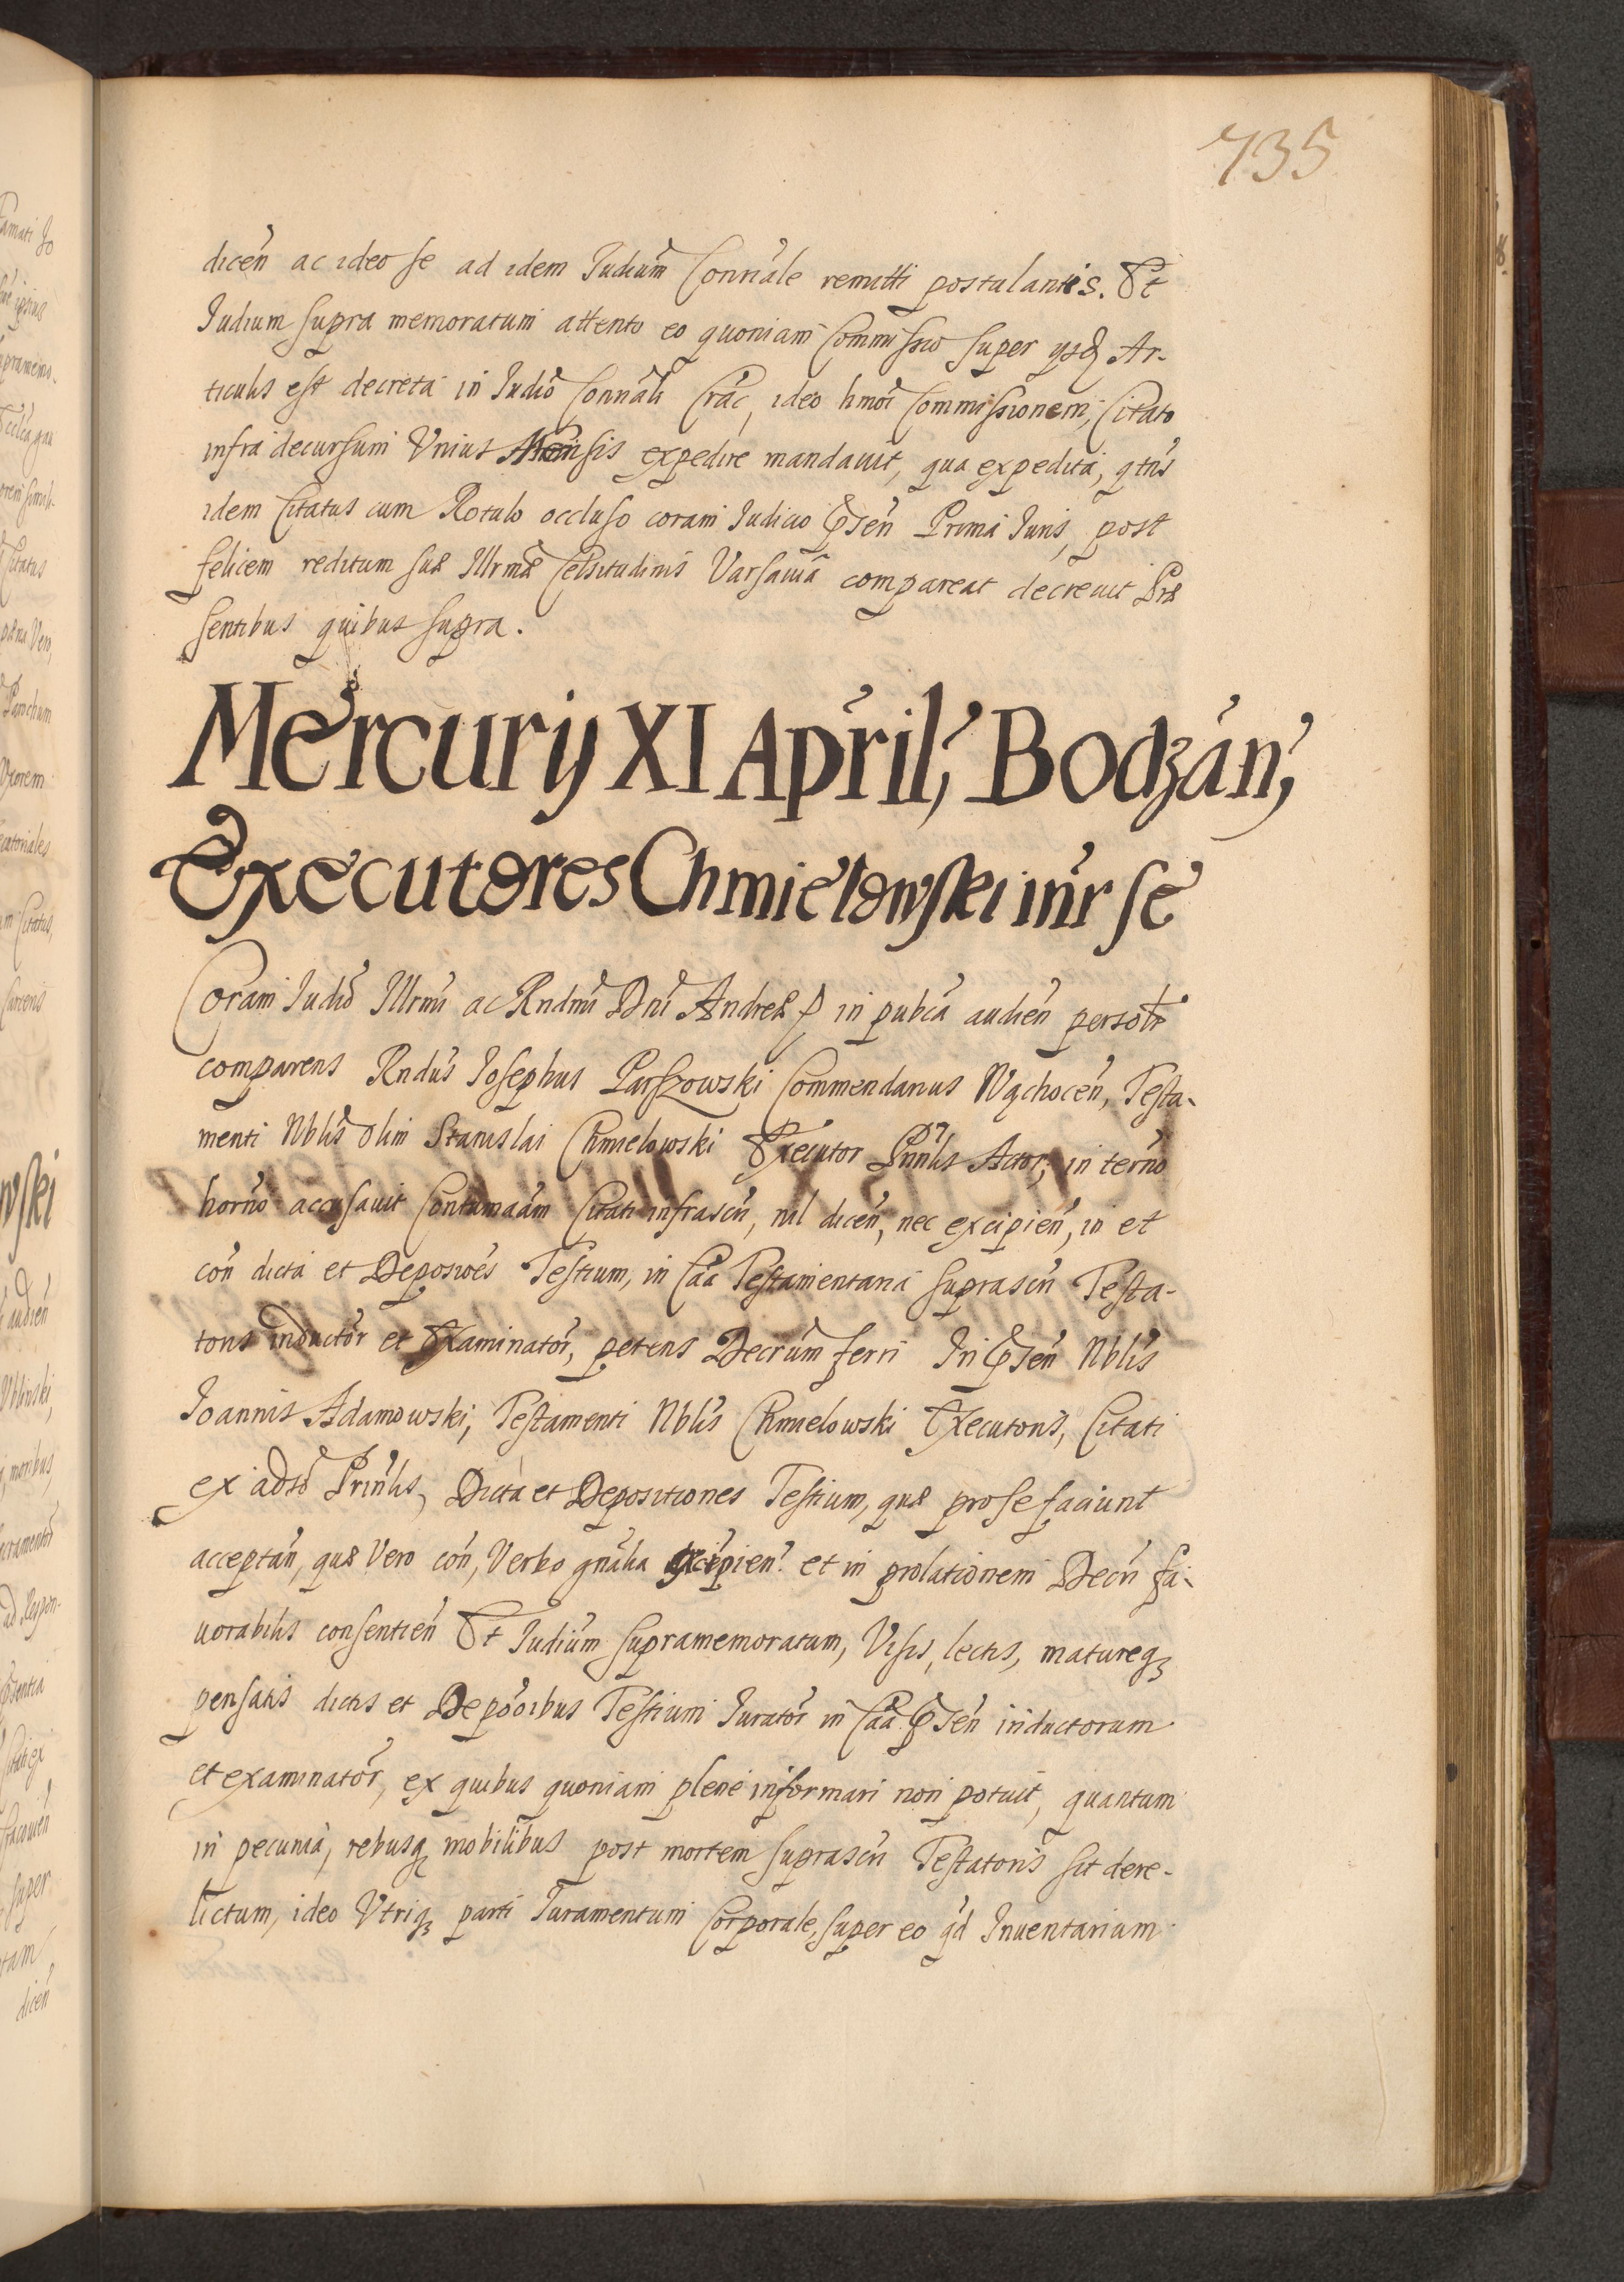 735
dicen̄ ac ideo se ad idem Judiūm Conn̄ale remitti postulantis. Et
Judium supra memoratum attento eo quoniam Commissio super ysd Ar-
ticulis est decreta in Judiō Connāli Crāc, ideo hmōi Commissionem, Citato
infra decursum Vnius Mensis expedire mandauit, qua expedita, qtn̄s
idem Citatus cum Rotulo occluso coram Judicio Psen̄ Prima Iuris, post
felicem reditum suæ Illrmæ Celsitudinis Varsauiā compareat decreuit Præ
sentibus quibus supra.
Mercurij XI April, Bodzan,
Executores Chmielowski inr̄ se
Coram Judiō Illrmi ac Rndmi Dni Andreæ in pubcā audien̄ persotr
comparens Rndus Iosephus Parszowski Commendarius Wąchocen̄, Testa-
menti Nblis Olim Stanislai Chmielowski Executor Prin̄lis Actor, in tern̄o
horn̄o accusauit Contumaām Citati infrascrī, nil dicen̄, nec excipien̄, in et
con̄ dicta et Deposioēs Testium, in Caā Testamentaria suprascrī Testa-
toris inductōr et Examinatōr, petens Decrūm ferri In Psen̄ Nblis
Ioannis Adamowski, Testamenti Nblis Chmielowski Executoris, Citati
ex adsō Prin̄lis, Dicta et Depositiones Testium, quæ pro se faciunt
acceptan̄, quæ Vero con̄, Verbo gnālia excipien̄ et in prolationem Decrī fa-
uorabilis consentien̄ Et Judiūm supramemoratum, Visis, lectis, matureqʒ
pensatis dictis et Depōoibus Testium Iuratōr in Caā Psen̄ inductorum
et examinatōr, ex quibus quoniam plene informari non potuit, quantum
in pecunia, rebusqʒ mobilibus post mortem suprascrī Testatoris sit dere-
lictum, ideo Vtriqʒ parti Iuramentum Corporale, super eo qd Inuentarium